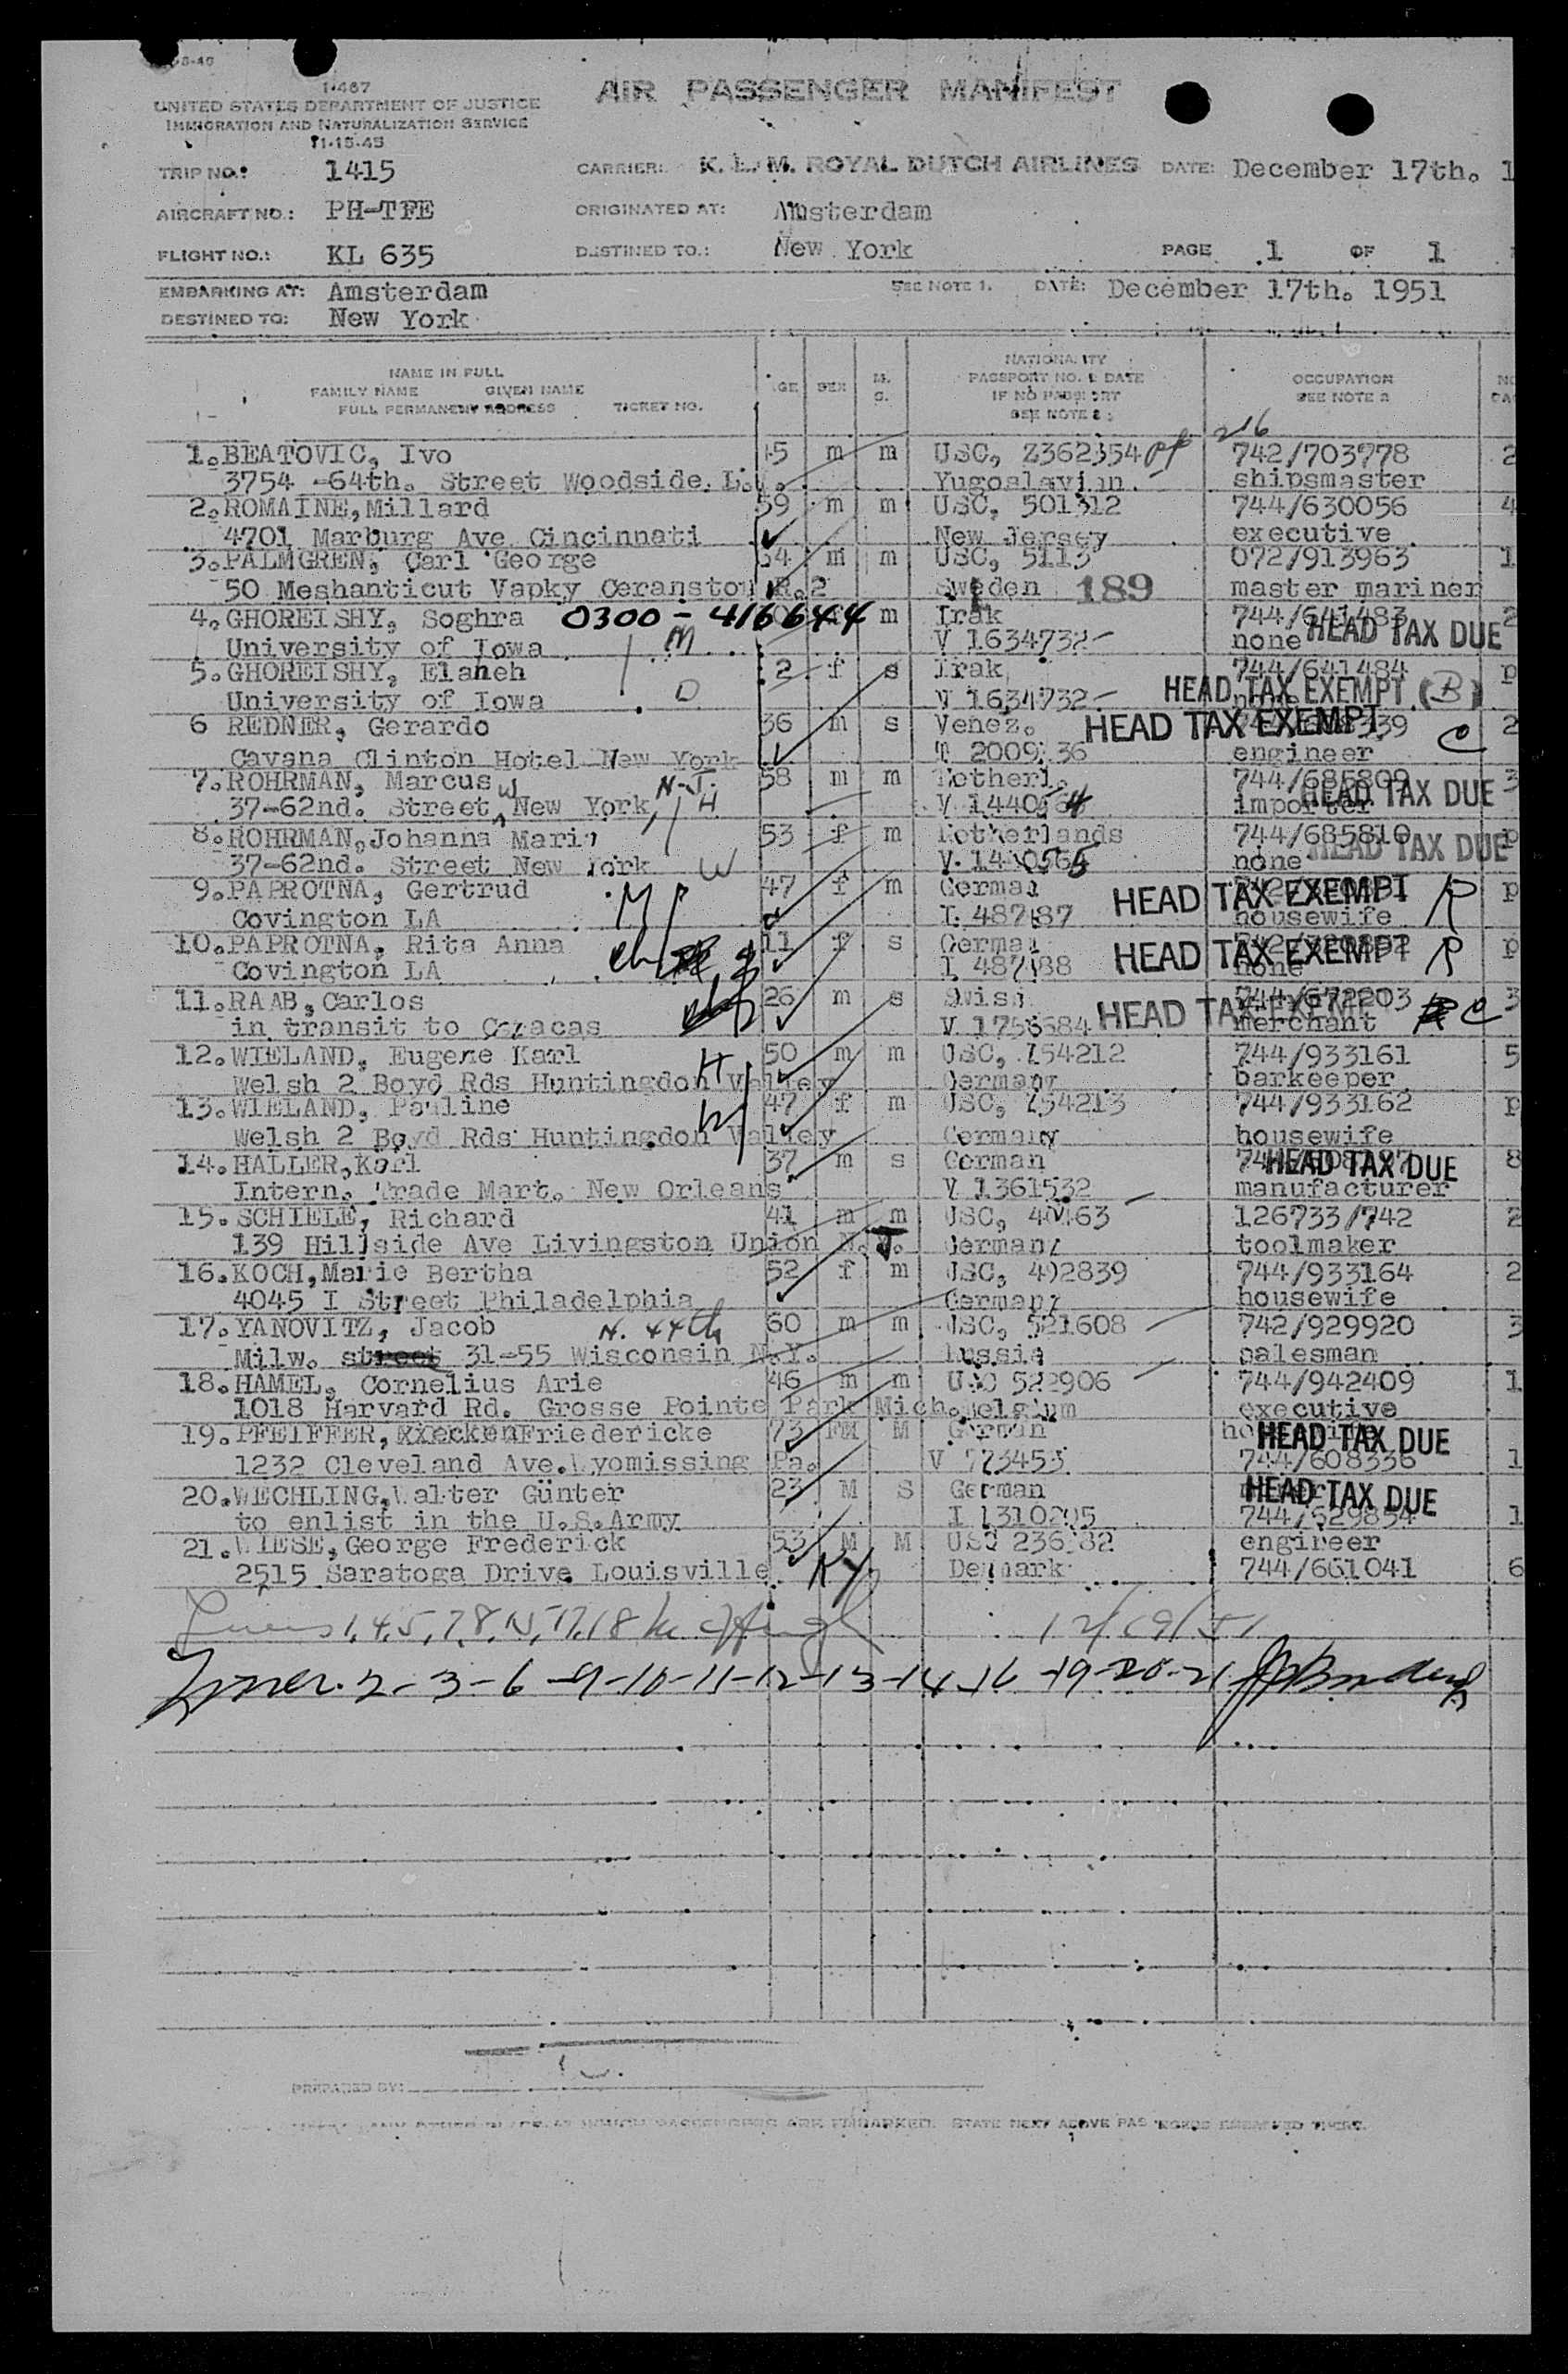 I-467
UNITED STATES DEPARTMENT OF JUSTICE
IMMIGRATION AND NATURALIZATION SERVICE
11-15-45
AIR PASSENGER MANIFEST
TRIP NO.: 1415 CARRIER: K. L. M. ROYAL DUTCH AIRLINES DATE: December 17th. 1
AIRCRAFT NO.: PH-TFE ORIGINATED AT: Amsterdam
FLIGHT NO.: KL 635 DESTINED TO.: New York PAGE 1 OF 1
EMBARKING AT: Amsterdam SEE NOTE 1. DATE: December 17th. 1951
DESTINED TO: New York
NAME IN FULL
FAMILY NAME GIVEN NAME
FULL PERMANENT ADDRESS TICKET NO.
AGE SEX M. S.
NATIONALITY
PASSPORT NO. & DATE
IF NO PASSPORT
SEE NOTE 2
OCCUPATION
SEE NOTE 2
216
1. BEATOVIC, Ivo m m USC, 742/703778 2
3754 -64th. Street Woodside. Yugoslavian shipsmaster
2. ROMAINE, Millard 59 m m USC, 501312 744/630056 4
4701 Marburg Ave Cincinnati New Jersey executive
3. PALMGREN, Carl George m m USC, 5113 072/913963 1
50 Meshanticut Vapky Ceranston R.2 Sweden 189 master mariner
4. GHOREISHY, Soghra 0300 - 416644 m Irak 744/641483 2
University of Iowa M V 1634732 none HEAD TAX DUE
5. GHOREISHY, Elaheh 2 f s Irak 744/641484 p
University of Iowa D V 1634732 HEAD TAX EXEMPT (B)
6 REDNER, Gerardo 36 m s Venez. HEAD TAX EXEMPT 2
Cavana Clinton Hotel New York engineer C
7. ROHRMAN, Marcus 58 m m Netherl. 744/685809 3
37-62nd. Street, W New York, N.J. H importer HEAD TAX DUE
8. ROHRMAN, Johanna Maria 53 f m Netherlands 744/685810 p
37-62nd. Street New York W none HEAD TAX DUE
9. PAPROTNA, Gertrud 47 f m German HEAD TAX EXEMPT R p
Covington LA housewife
10. PAPROTNA, Rita Anna 11 f s German HEAD TAX EXEMPT R p
Covington LA none
11. RAAB, Carlos 26 m s Swiss 744/672203 3
in transit to Caracas HEAD TAX EXEMPT merchant C
12. WIELAND, Eugene Karl H 50 m m USC, 744/933161 5
Welsh 2 Boyd Rds Huntingdon Valley Germany barkeeper
13. WIELAND, Pauline W 47 f m USC, 744/933162 p
Welsh 2 Boyd Rds Huntingdon Valley Germany housewife
14. HALLER, Karl 37 m s German HEAD TAX DUE 8
Intern. Trade Mart. New Orleans V 1361532 manufacturer
15. SCHIELE, Richard 41 m m USC, 126733/742 2
139 Hillside Ave Livingston Union N.J. Germany toolmaker
16. KOCH, Marie Bertha 52 f m USC, 492839 744/933164 2
4045 I Street Philadelphia Germany housewife
17. YANOVITZ, Jacob N. 44th 60 m m USC, 521608 742/929920 3
Milw. street 31-55 Wisconsin N.Y. Russia salesman
18. HAMEL, Cornelius Arie 46 m m USC 522906 744/942409 1
1018 Harvard Rd. Grosse Pointe Park Mich. Belgium executive
19. PFEIFFER, Friedericke 73 FM M German HEAD TAX DUE
1232 Cleveland Ave. Wyomissing Pa. V 744/608336 1
20. WECHLING, Walter Günter 23 M S German HEAD TAX DUE
to enlist in the U.S.Army 744/529854 1
21. WIESE, George Frederick 53 M M USC engineer
2515 Saratoga Drive Louisville Ky. Denmark 744/661041 6
Lines 1,4,5,7,8,15,17,18 12/19/51
Lines. 2-3-6-9-10-11-12-13-14-16-19-20-21
PREPARED BY:
ANY OTHER PLACE AT WHICH PASSENGERS ARE EMBARKED. STATE NEXT ABOVE PASSENGERS EMBARKED THERE.